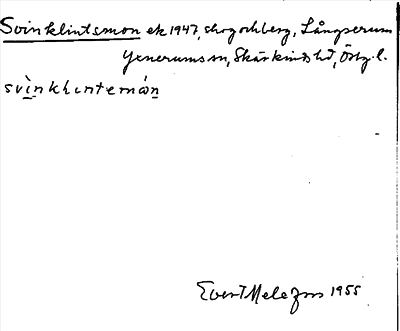 Svinklintsmon ek 1947, skog och berg, Långserum
Yxnerums sn, Skärkinds hd, Östg.l.
svìnklintemón
Evert Melefors 1955